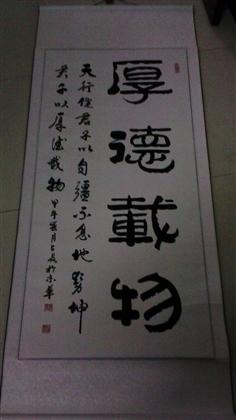 厚德載物
天行健君子以自彊不息地勢坤
君子以厚德載物 甲午